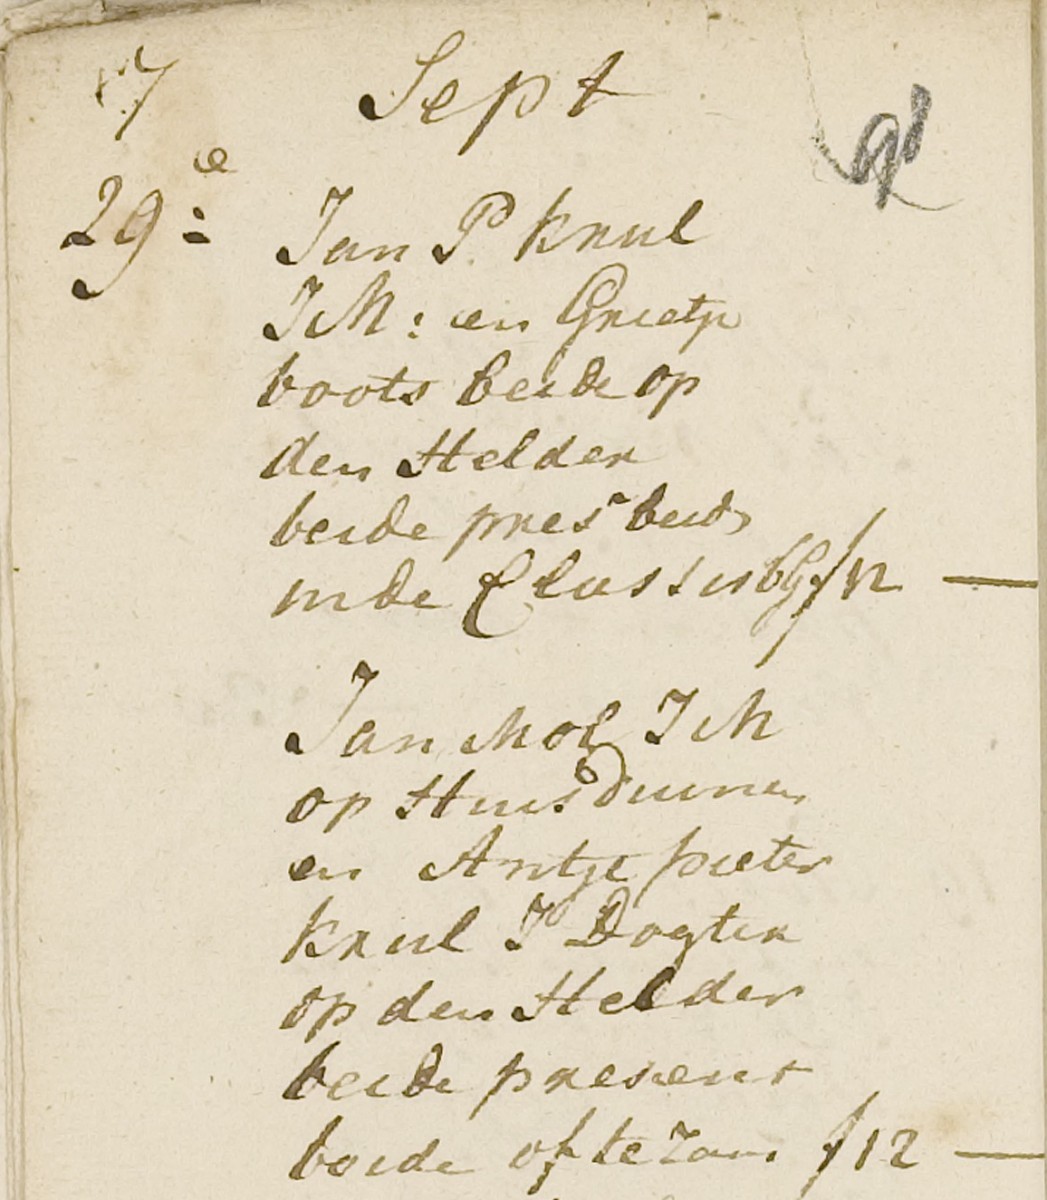 7 Sept
91
29e
Jan P. Krul
JM: en Grietje
boots beide op
den Helder
beide pres beide
in de Classis bG f 12 —
Jan Mol JM
op Huisduinen
en Antje pieter
Krul J Dogter
op den Helder
beide present
beide of te zam f 12 —